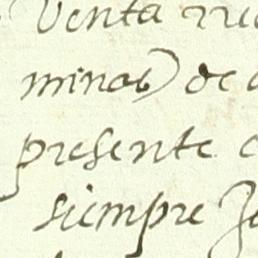 Venta
minas de
presente
siempre